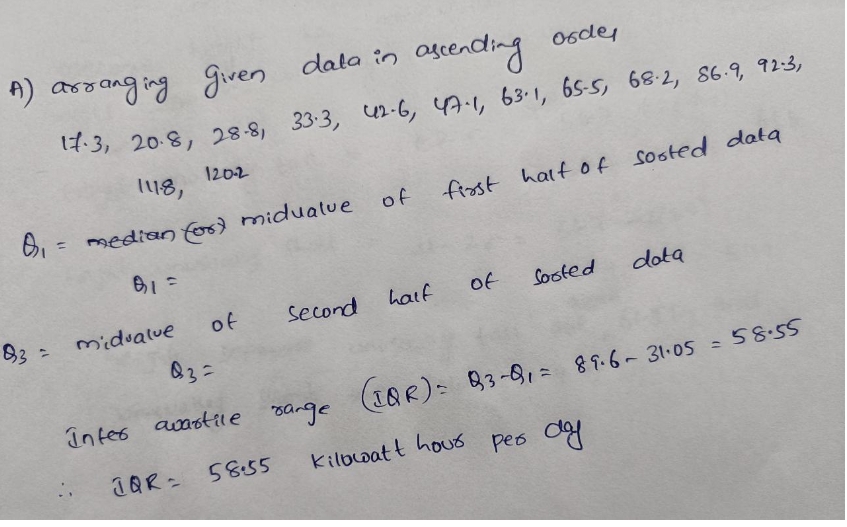 A) arranging given data in ascending order
17.3, 20.8, 28.8, 33.3, 42.6, 47.1, 63.1, 65.5, 68.2, 86.9, 92.3,
1118, 120.2
Q1 = median (or) midvalue of first half of sorted data
Q1 =
Q3 = midvalue of second half of sorted data
Q3 =
Inter quartile range (IQR) = Q3-Q1 = 89.6 - 31.05 = 58.55
∴ IQR = 58.55 Kilowatt hour per day